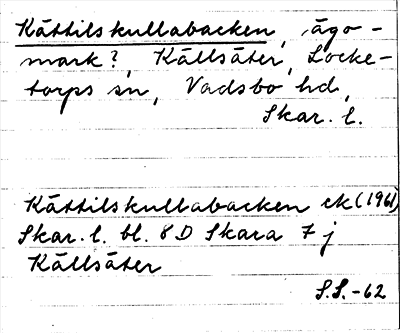 Kättilskullabacken, ägo-
mark?, Källsäter, Locke-
torps sn, Vadsbo hd,
Skar. l.
Kättilskullabacken ek (1961)
Skar. l. bl. 8 D Skara 7 j
Källsäter
S.S.-62